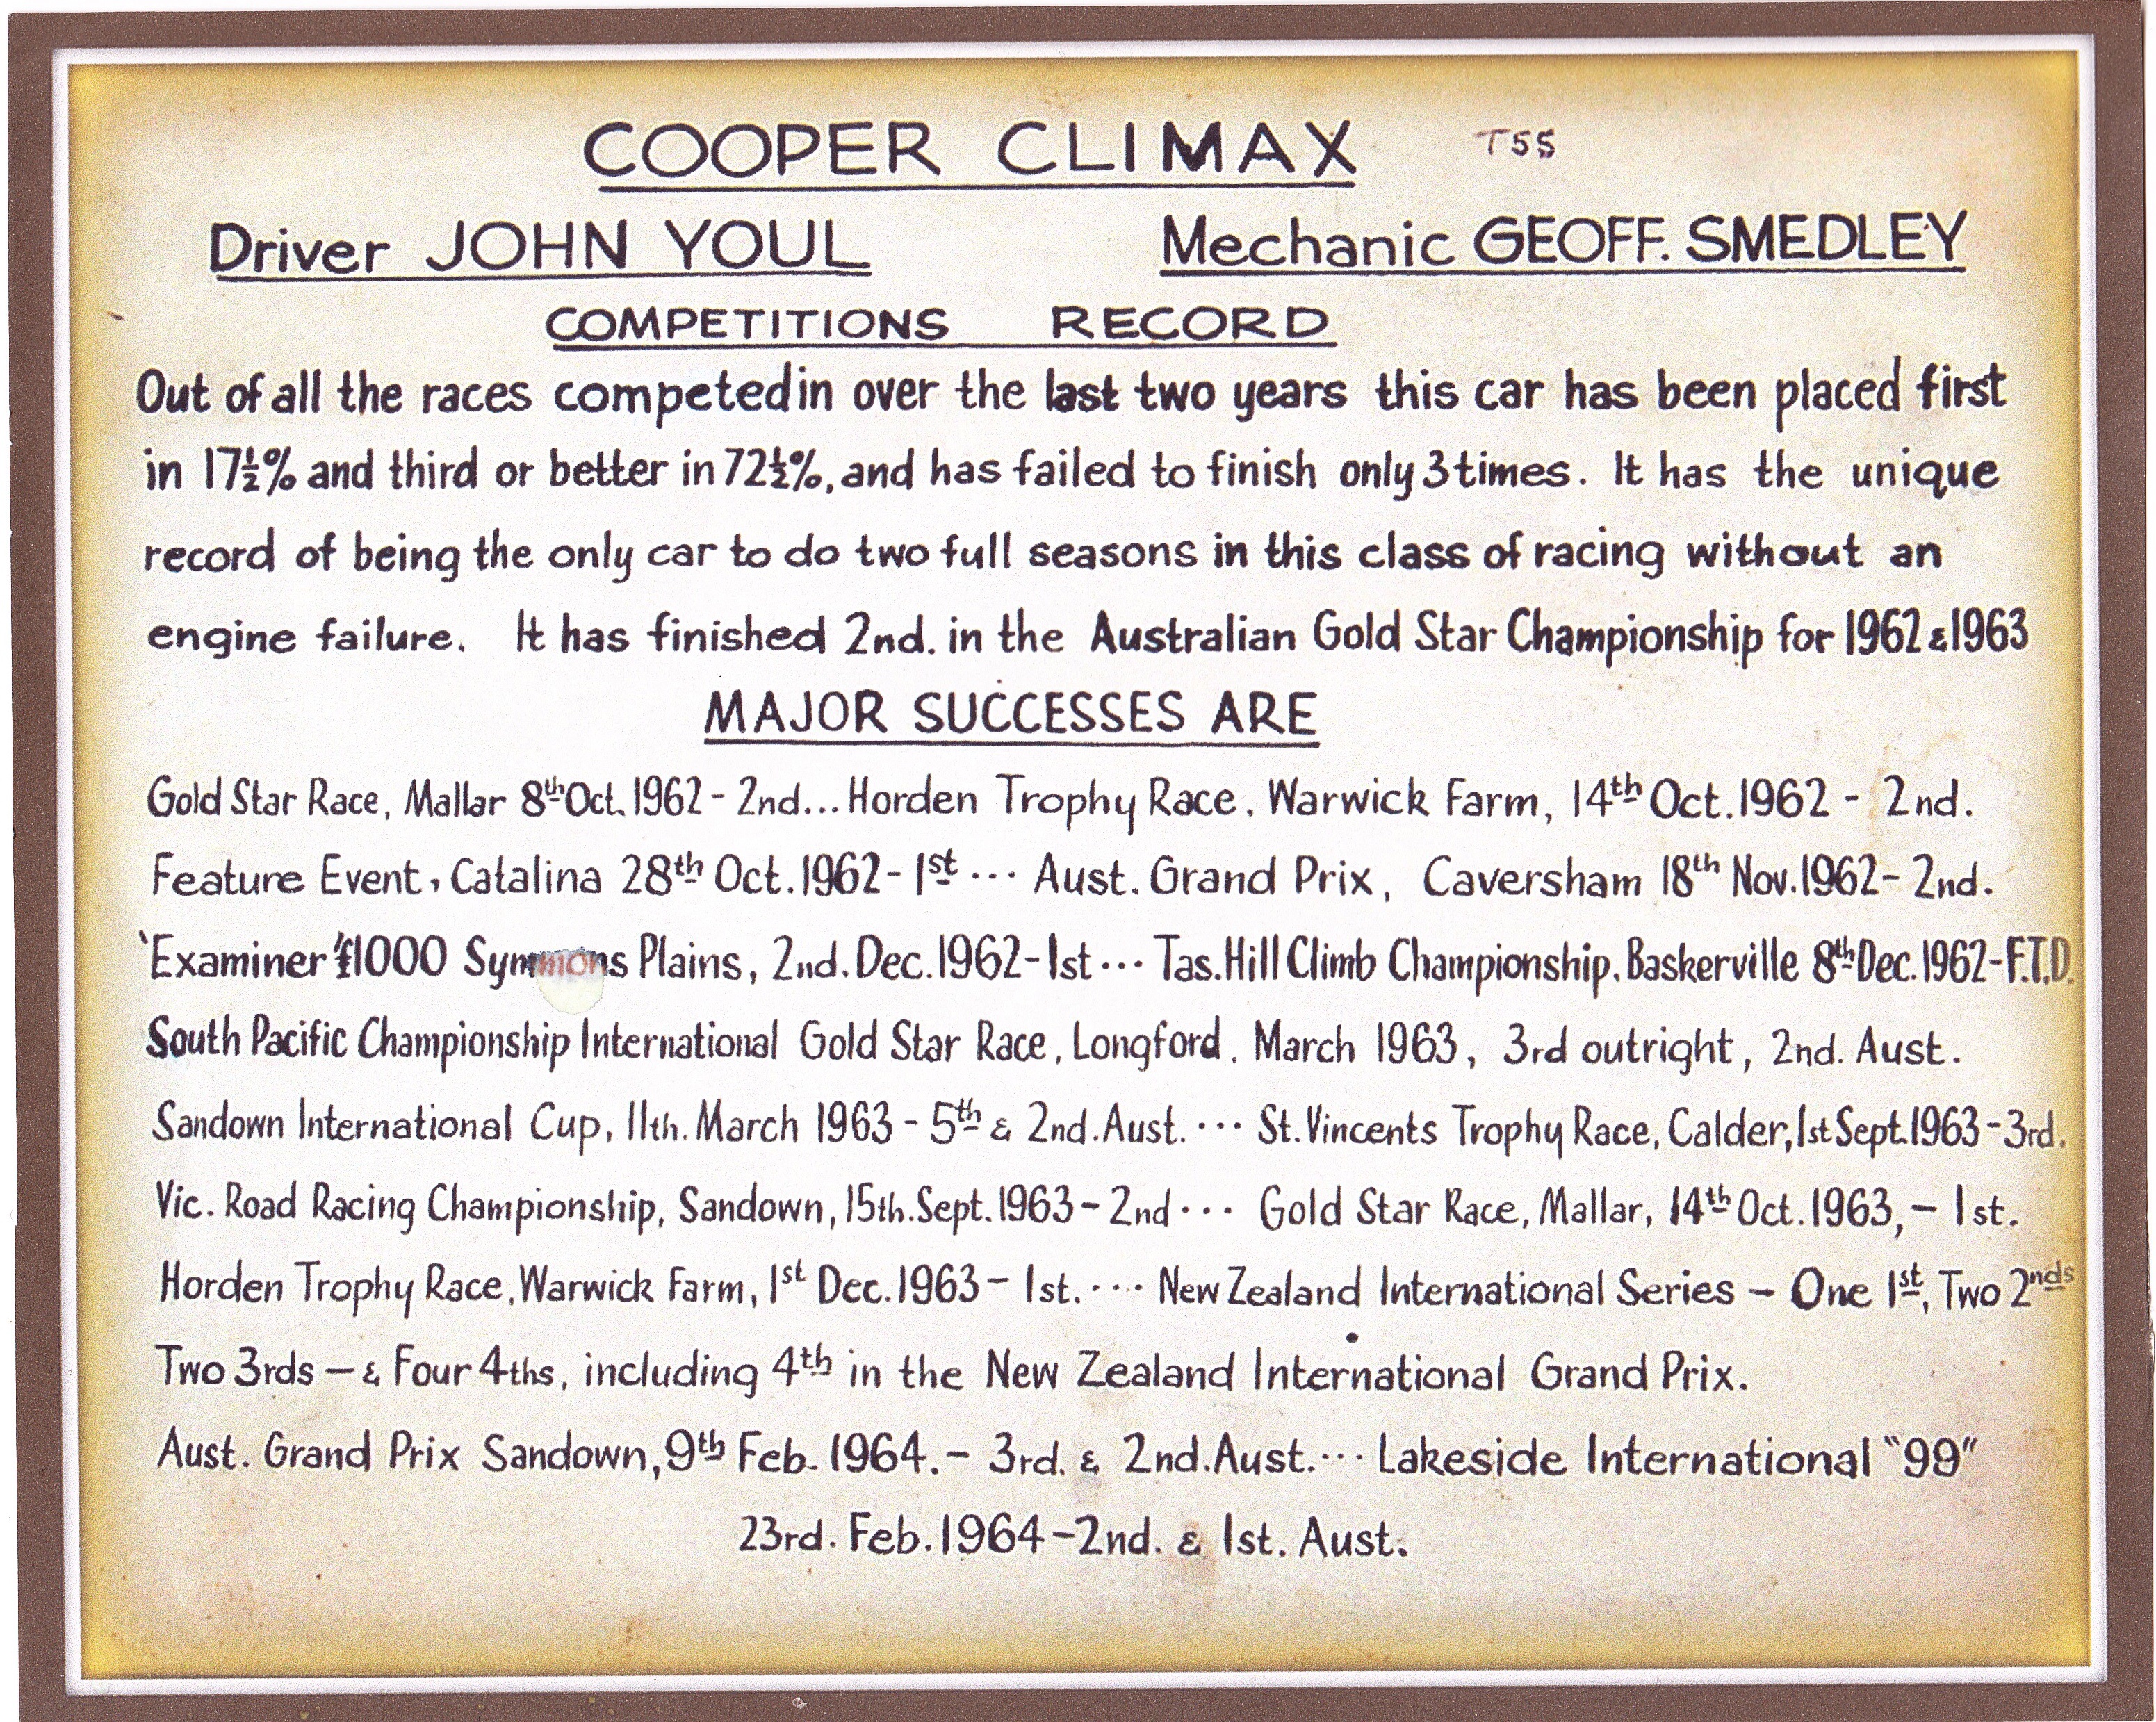 COOPER CLIMAX T55
Driver JOHN YOUL Mechanic GEOFF. SMEDLEY
COMPETITIONS RECORD
Out of all the races competed in over the last two years this car has been placed first
in 17½% and third or better in 72½%, and has failed to finish only 3 times. It has the unique
record of being the only car to do two full seasons in this class of racing without an
engine failure. It has finished 2nd. in the Australian Gold Star Championship for 1962 & 1963
MAJOR SUCCESSES ARE
Gold Star Race, Mallar 8th Oct. 1962 - 2nd... Horden Trophy Race, Warwick Farm, 14th Oct. 1962 - 2nd.
Feature Event, Catalina 28th Oct. 1962 - 1st ... Aust. Grand Prix, Caversham 18th Nov. 1962 - 2nd.
'Examiner' £1000 Symmons Plains, 2nd. Dec. 1962 - 1st ... Tas. Hill Climb Championship, Baskerville 8th Dec. 1962 - F.T.D.
South Pacific Championship International Gold Star Race, Longford. March 1963, 3rd outright, 2nd. Aust.
Sandown International Cup, 11th. March 1963 - 5th & 2nd. Aust. ... St. Vincents Trophy Race, Calder, 1st Sept. 1963 - 3rd.
Vic. Road Racing Championship, Sandown, 15th. Sept. 1963 - 2nd ... Gold Star Race, Mallar, 14th Oct. 1963, - 1st.
Horden Trophy Race, Warwick Farm, 1st Dec. 1963 - 1st. ... New Zealand International Series - One 1st, Two 2nds
Two 3rds - & Four 4ths, including 4th in the New Zealand International Grand Prix.
Aust. Grand Prix Sandown, 9th Feb. 1964. - 3rd. & 2nd. Aust. ... Lakeside International "99"
23rd. Feb. 1964 - 2nd. & 1st. Aust.